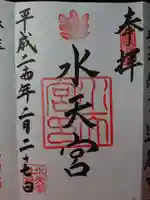 奉拝
水天宮
平成二十四年二月二十七日